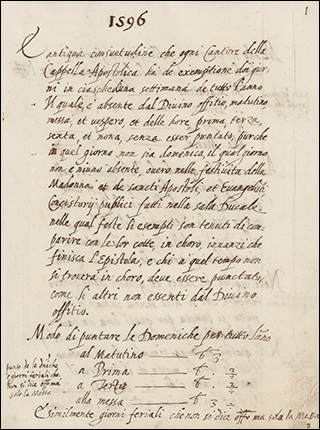 1
1596
È antiqua consuetudine che ogni Cantore della
Cappella Apostolica hà de exemptione doi gior-
ni in ciascheduna settimana de tutto l'anno
Il quale, è absente dal Divino offitio, matutino
messa, et vespero, et delle hore prima terza,
sexta, et nona, senza esser puntato, purche
in quel giorno non sia domenica, il qual giorno
non è niuno absente, overo nelle festività della
Madonna et de sancti Apostoli, et Evangelisti
Concistorij publici fatti nella sala Ducale.
nelle qual feste li exempti son tenuti di com-
parire con le lor cotte, in choro, innanzi che
finisca l'Epistola, e chi a quel tempo non
si troverà in choro, deve essere puntato,
come li altri non essenti dal Divino
offitio.
Modo di puntare le Domeniche per tutto l'año
al Matutino
a Prima
a Tertia
alla messa
giorni feriali che
non si dice offo ma
solo la Messa
Similmente giorni feriali che non si dice offo ma solo la Messa